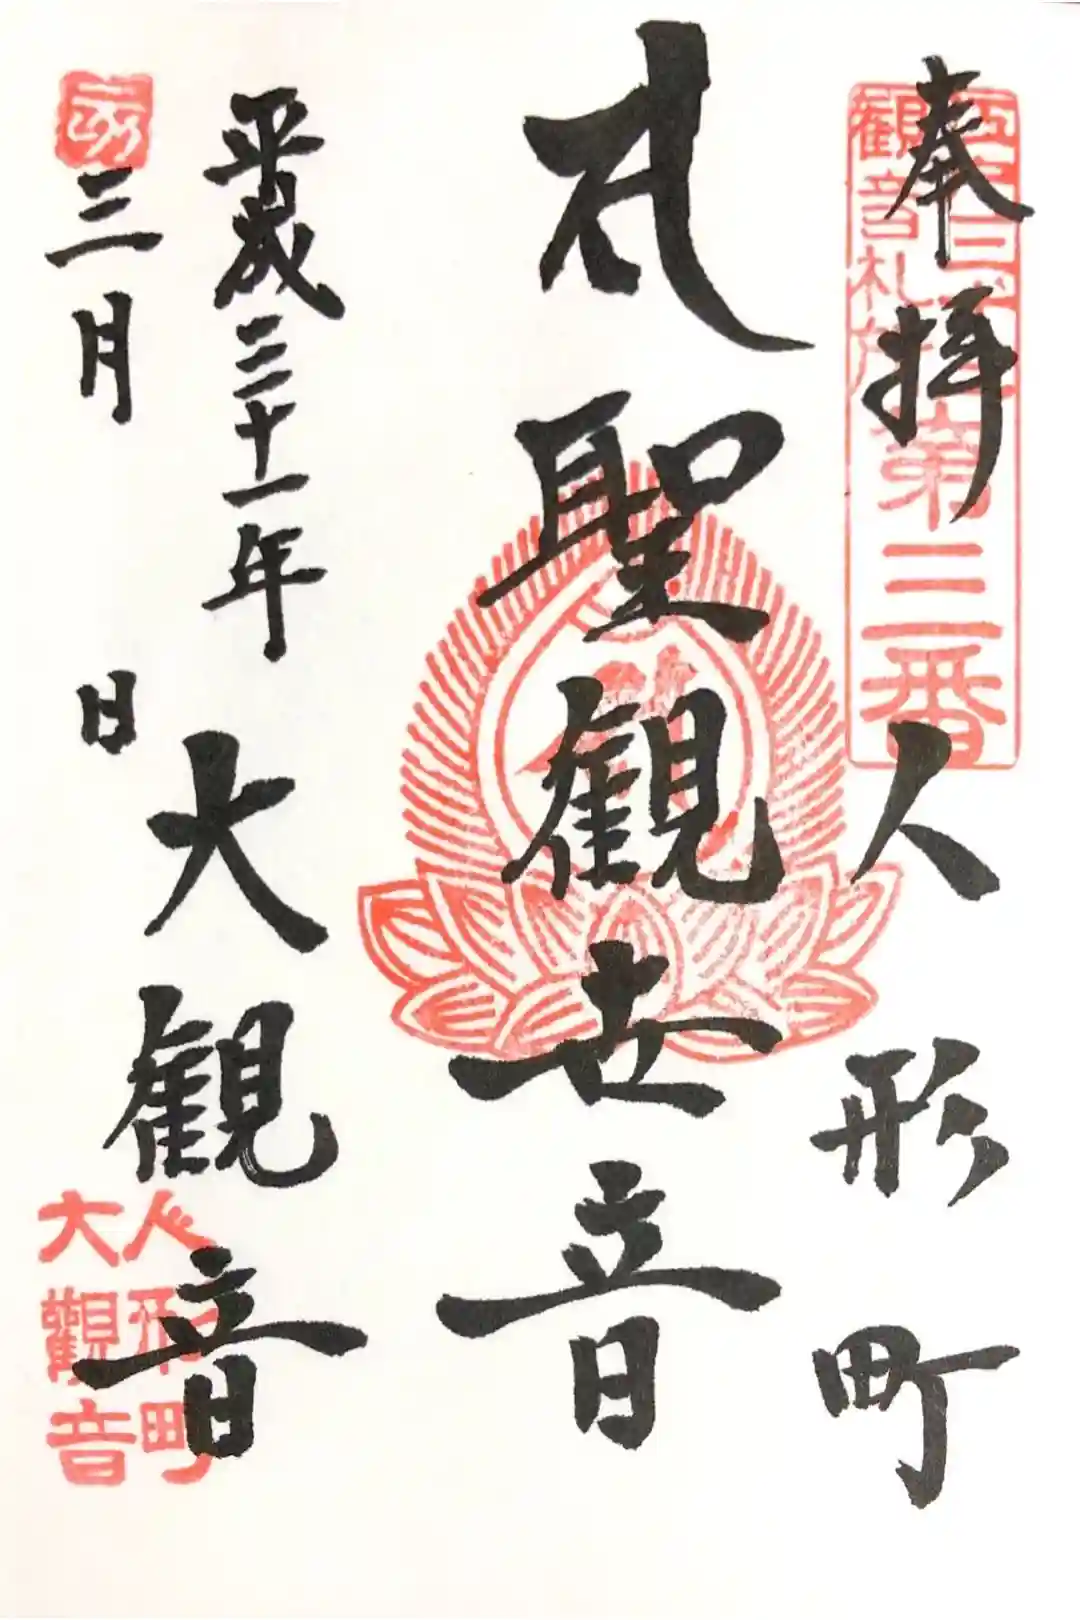 奉拝
人形町
聖観世音
平成三十一年
三月 日
大観音
観音札所
第三番
人形町
大観音